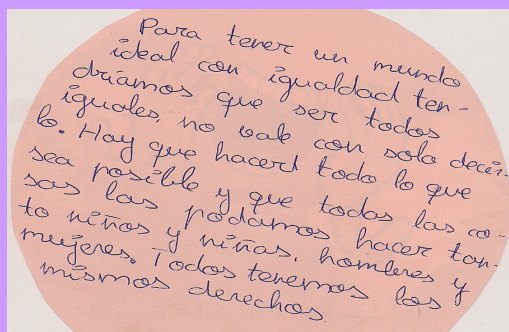 Para tener un mundo
ideal con igualdad ten-
dríamos que ser todos
iguales, no vale con solo decir-
lo. Hay que hacert todo lo que
sea posible y que todas las co-
sas las podamos hacer tan-
to niños y niñas, hombres y
mujeres. Todos tenemos los
mismos derechos.